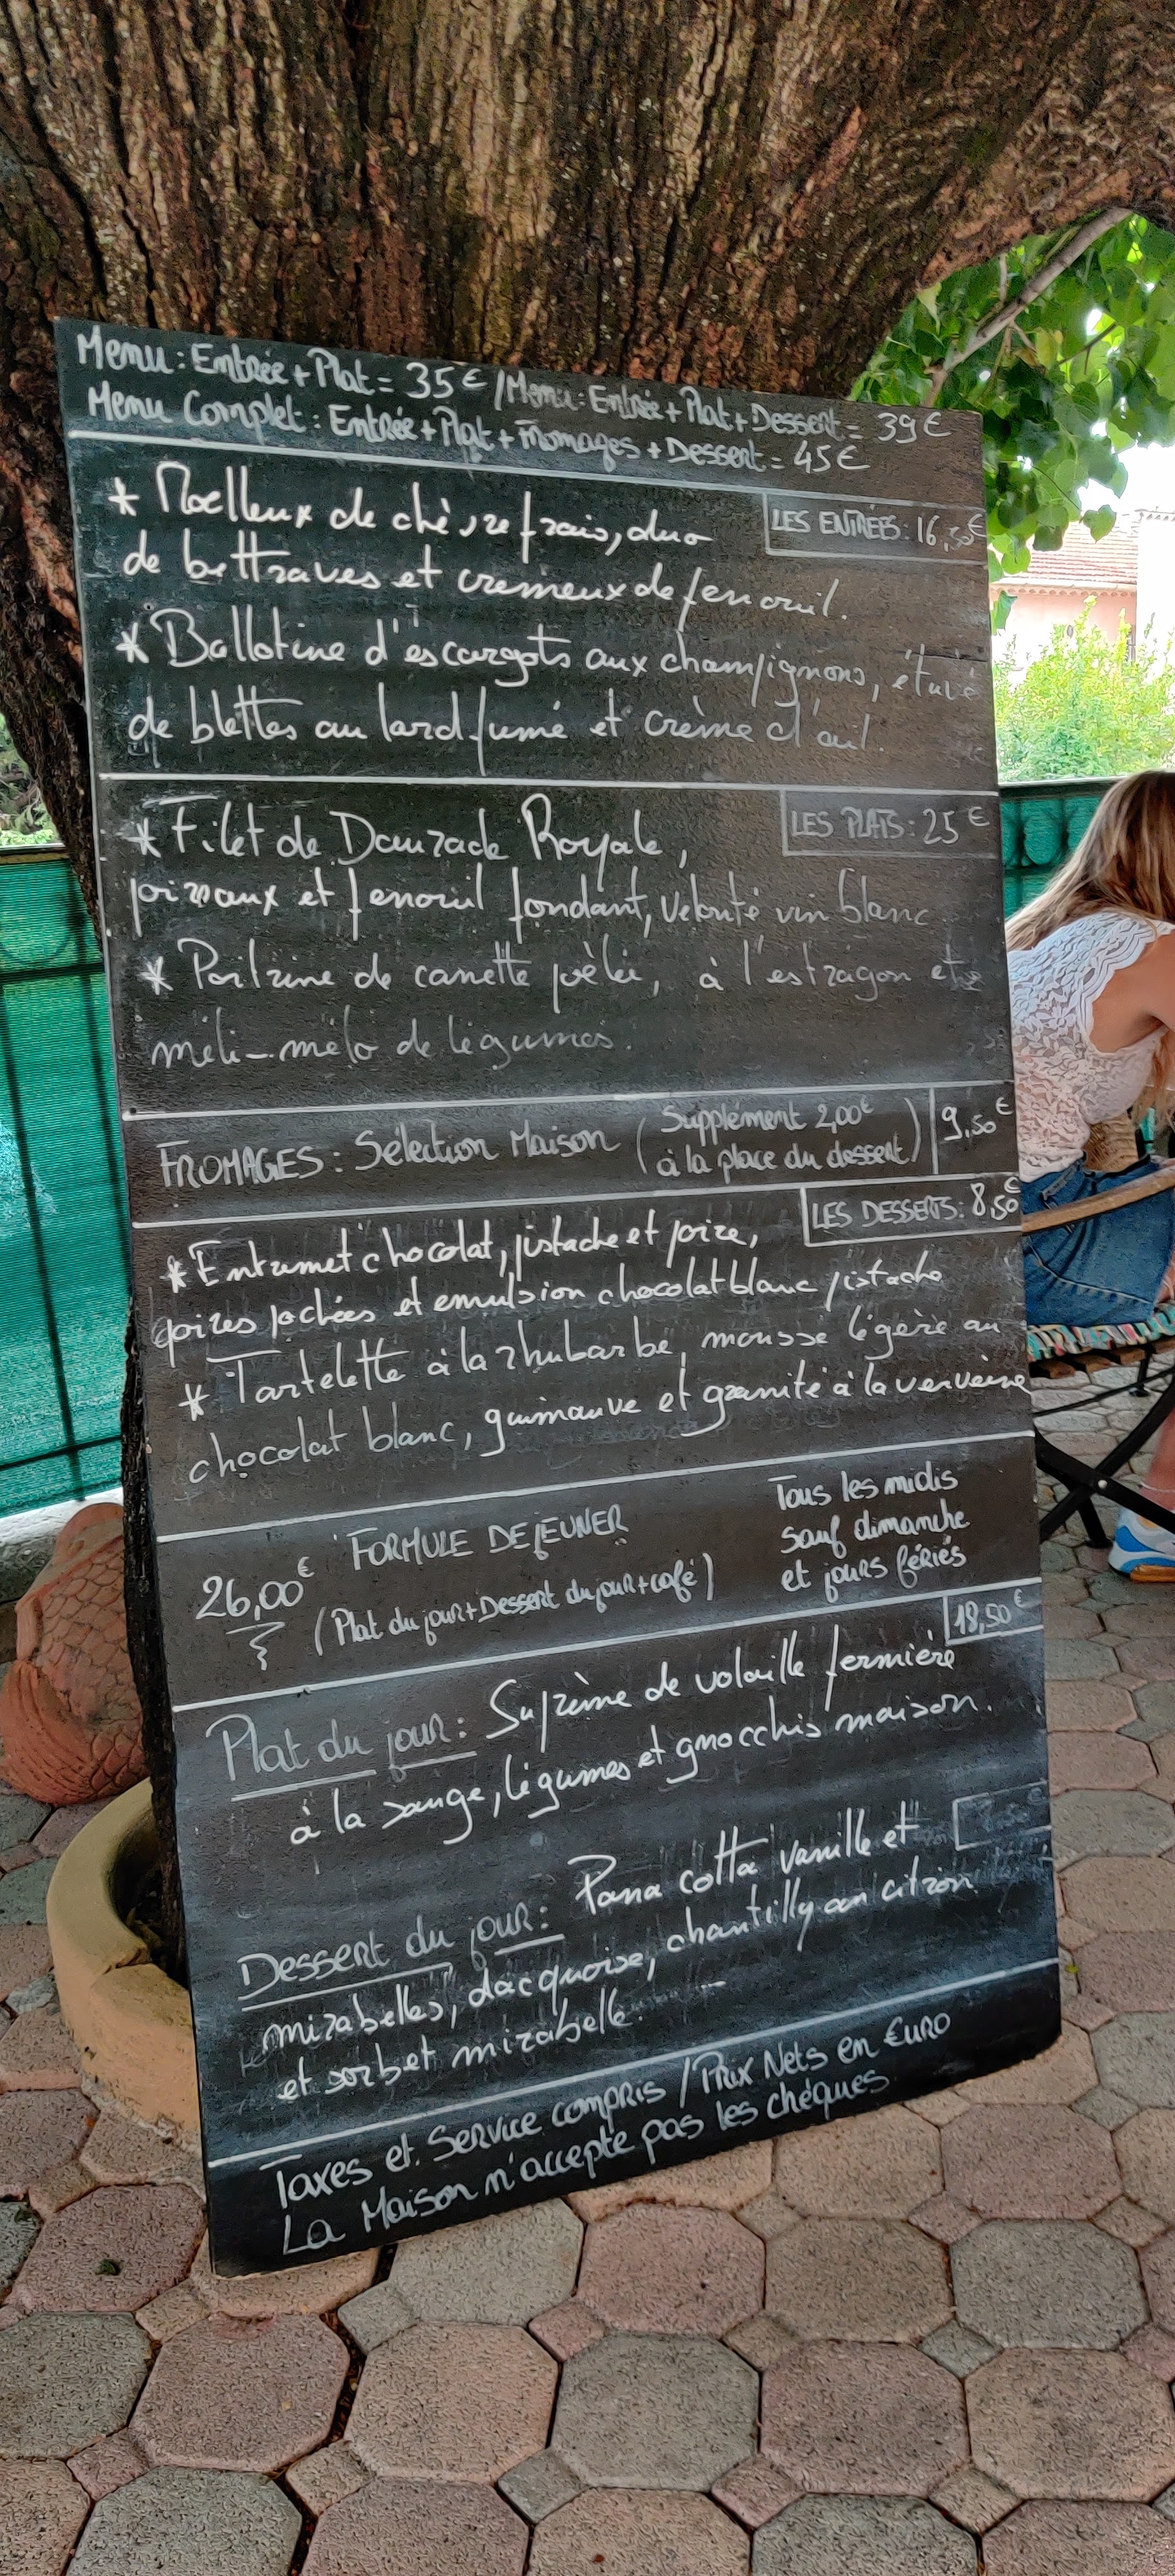 Menu: Entrée + Plat = 35€ / Menu: Entrée + Plat + Dessert = 39€
Menu Complet : Entrée + Plat + Fromages + Dessert = 45€
LES ENTRÉES: 16,50€
* Moelleux de chèvre frais, duo
de bettraves et cremeux de fenouil.
* Ballotine d'escargots aux champignons, étuvé
de blettes au lard fumé et crème d'ail.
LES PLATS: 25€
* Filet de Daurade Royale,
poireaux et fenouil fondant, velouté vin blanc
* Poitrine de canette poêlée, à l'estragon et
méli-mélo de légumes.
FROMAGES : Sélection Maison (Supplément 2,00€
à la place du dessert) 9,50€
LES DESSERTS: 8,50€
* Entremet chocolat, pistache et poire,
poires pochées et emulsion chocolat blanc pistache
* Tartelette à la rhubarbe, mousse légère au
chocolat blanc, guimauve et granité à la verveine
26,00€ FORMULE DEJEUNER
(Plat du jour + Dessert du jour + café)
Tous les midis
sauf dimanche
et jours fériés
18,50€
Plat du jour: Suprème de volaille fermière
à la sauge, légumes et gnocchis maison.
Dessert du jour: Pana cotta vanille et
mirabelles, dacquoise, chantilly au citron
et sorbet mirabelle.
Taxes et Service compris / Prix Nets en €uro
La Maison n'accepte pas les chéques